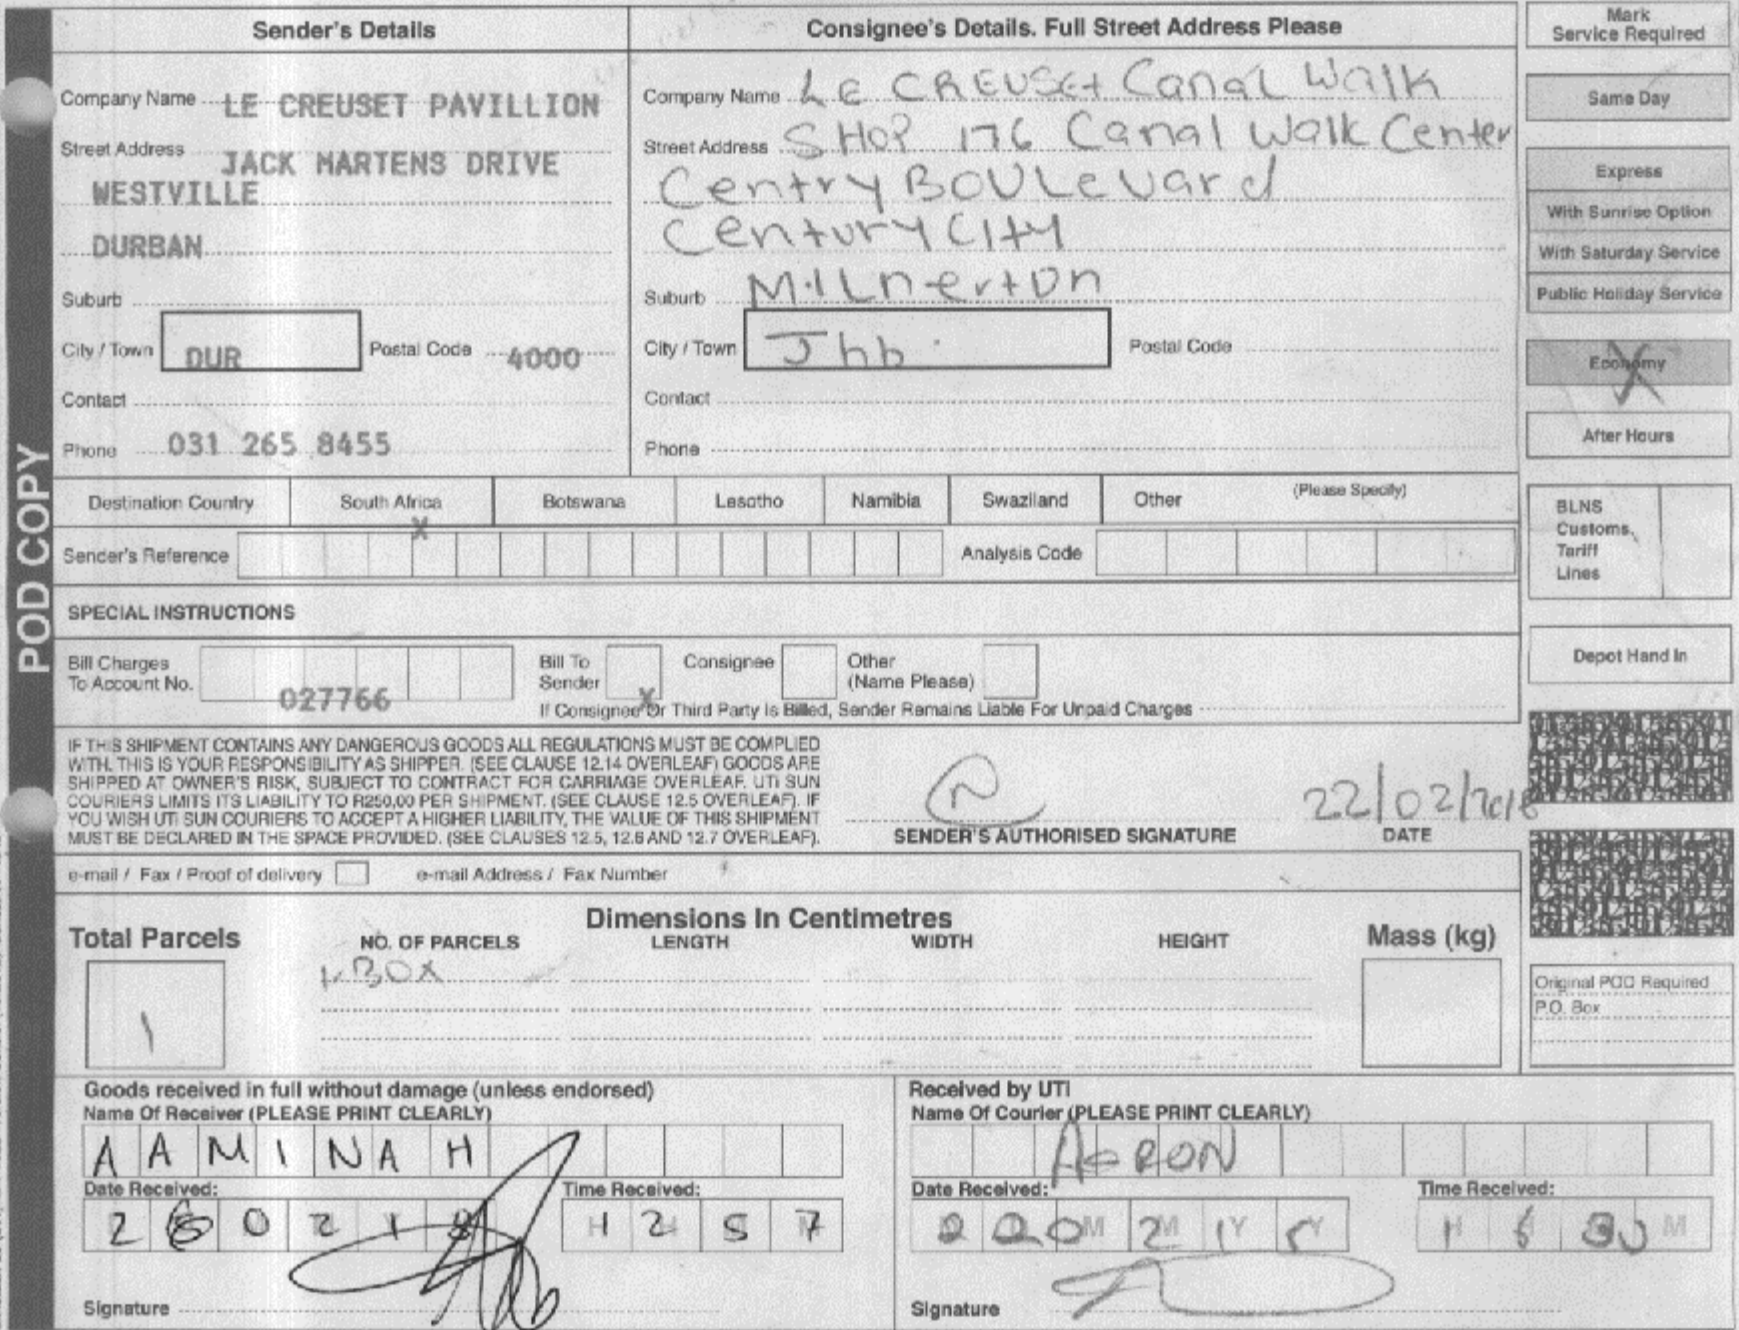 POD COPY
Sender's Details
Company Name LE CREUSET PAVILLION
Street Address JACK MARTENS DRIVE
WESTVILLE
DURBAN
Suburb
City / Town DUR Postal Code 4000
Contact
Phone 031 265 8455
Consignee's Details. Full Street Address Please
Company Name LE CREUSEt Canal Walk
Street Address SHOP 176 Canal Walk Center
Centry BOULevard
Century City
Suburb Milnerton
City / Town Jhb. Postal Code
Contact
Phone
Mark
Service Required
Same Day
Express
With Sunrise Option
With Saturday Service
Public Holiday Service
Economy X
After Hours
Destination Country South Africa Botswana Lesotho Namibia Swaziland Other (Please Specify)
X
Sender's Reference Analysis Code
BLNS
Customs
Tariff
Lines
SPECIAL INSTRUCTIONS
Depot Hand In
Bill Charges
To Account No. 027766
Bill To
Sender X
Consignee
Other
(Name Please)
If Consignee Or Third Party Is Billed, Sender Remains Liable For Unpaid Charges
IF THIS SHIPMENT CONTAINS ANY DANGEROUS GOODS ALL REGULATIONS MUST BE COMPLIED
WITH. THIS IS YOUR RESPONSIBILITY AS SHIPPER. (SEE CLAUSE 12.14 OVERLEAF) GOODS ARE
SHIPPED AT OWNER'S RISK, SUBJECT TO CONTRACT FOR CARRIAGE OVERLEAF. UTi SUN
COURIERS LIMITS ITS LIABILITY TO R250,00 PER SHIPMENT. (SEE CLAUSE 12.5 OVERLEAF). IF
YOU WISH UTi SUN COURIERS TO ACCEPT A HIGHER LIABILITY, THE VALUE OF THIS SHIPMENT
MUST BE DECLARED IN THE SPACE PROVIDED. (SEE CLAUSES 12.5, 12.6 AND 12.7 OVERLEAF).
SENDER'S AUTHORISED SIGNATURE
22/02/2018
DATE
e-mail / Fax / Proof of delivery e-mail Address / Fax Number
Dimensions In Centimetres
Total Parcels NO. OF PARCELS LENGTH WIDTH HEIGHT Mass (kg)
BOX
1
Original POD Required
P.O. Box
Goods received in full without damage (unless endorsed)
Name Of Receiver (PLEASE PRINT CLEARLY)
AAMINAH
Date Received: Time Received:
260218 1257
Signature
Received by UTI
Name Of Courier (PLEASE PRINT CLEARLY)
Date Received: Time Received:
Signature